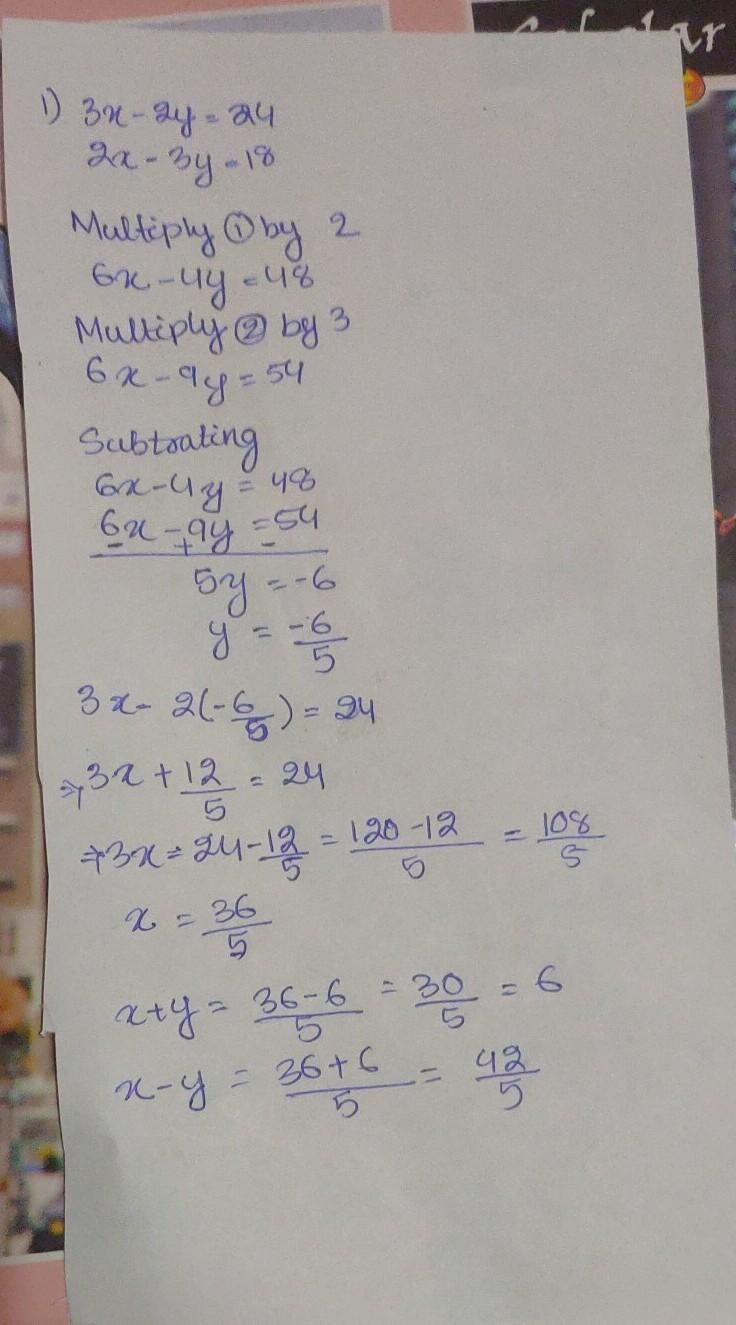 1) 3x - 2y = 24
2x - 3y = 18
Multiply ① by 2
6x - 4y = 48
Multiply ② by 3
6x - 9y = 54
Subtrating
6x - 4y = 48
6x - 9y = 54
- + -
5y = -6
y = -6/5
3x - 2(-6/5) = 24
⇒ 3x + 12/5 = 24
⇒ 3x = 24 - 12/5 = 120 - 12/5 = 108/5
x = 36/5
x + y = 36 - 6/5 = 30/5 = 6
x - y = 36 + 6/5 = 42/5